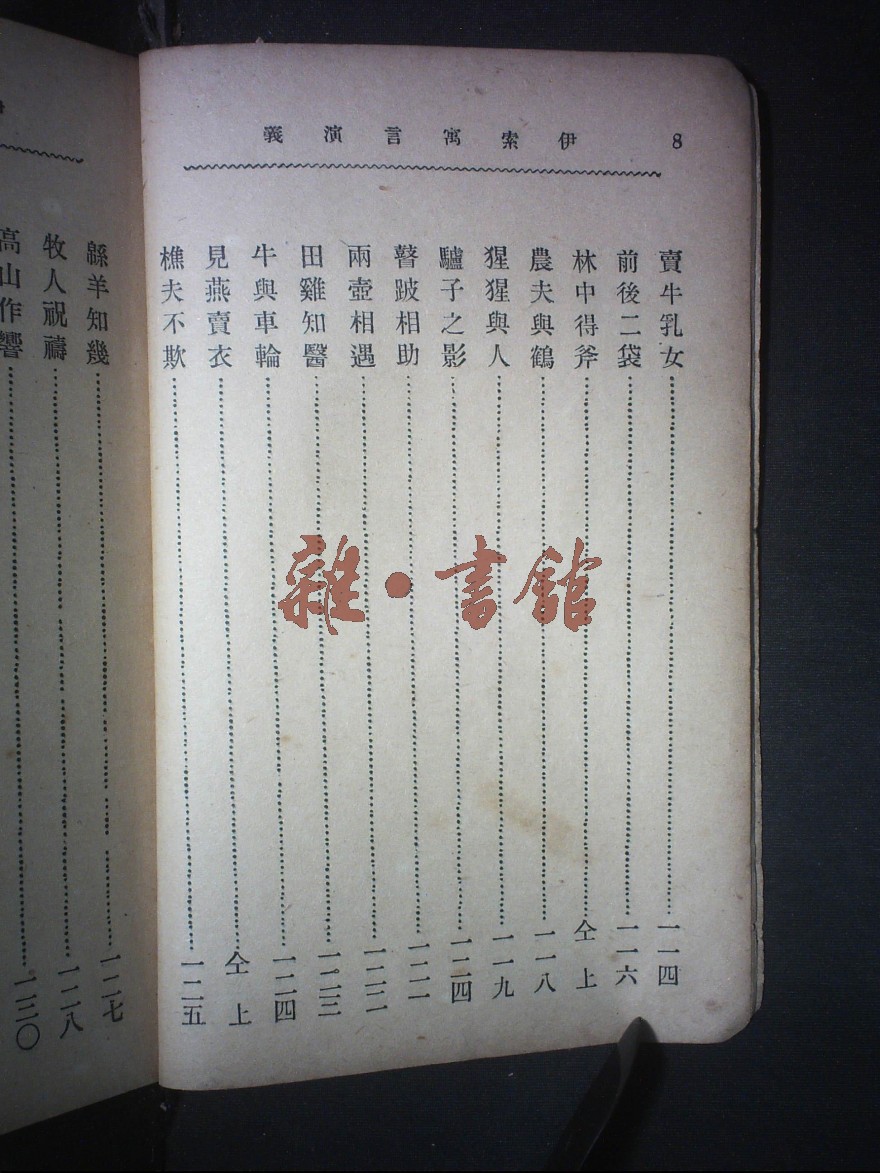 8 伊索寓言演義
賣牛乳女 一一四
前後二袋 一一六
林中得斧 仝上
農夫與鶴 一一八
猩猩與人 一一九
驢子之影 一二四
瞽跛相助 一二一
兩壺相遇 一二二
田雞知醫 一二三
牛與車輪 一二四
見燕賣衣 仝上
樵夫不欺 一二五
緜羊知幾 一二七
牧人祝禱 一二八
高山作響 一三〇
雜·書館